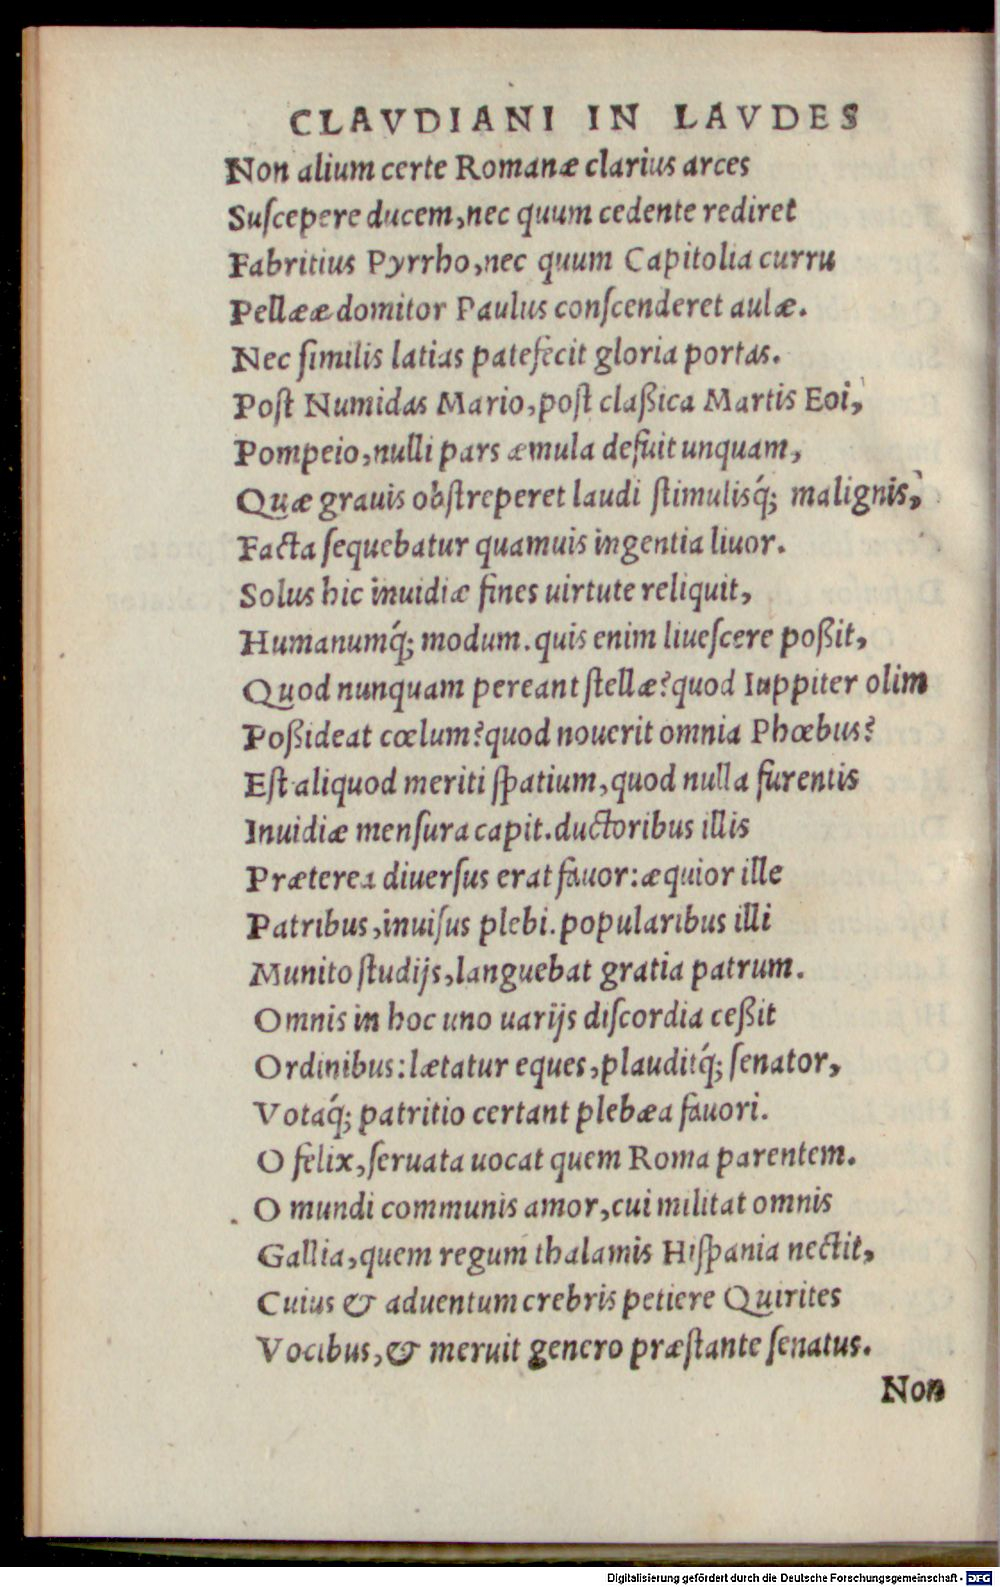 CLAVDIANI IN LAVDES
Non alium certe Romanæ clarius arces
Suſcepere ducem, nec quum cedente rediret
Fabritius Pyrrho, nec quum Capitolia curru
Pellææ domitor Paulus conſcenderet aulæ.
Nec ſimilis latias patefecit gloria portas.
Poſt Numidas Mario, poſt claßica Martis Eoi,
Pompeio, nulli pars æmula defuit unquam,
Quæ grauis obſtreperet laudi ſtimulisq́; malignis,
Facta ſequebatur quamuis ingentia liuor.
Solus hic inuidiæ fines uirtute reliquit,
Humanumq́; modum. quis enim liueſcere poßit,
Quod nunquam pereant ſtellæ? quod Iuppiter olim
Poßideat cœlum? quod nouerit omnia Phœbus?
Eſt aliquod meriti ſpatium, quod nulla furentis
Inuidiæ menſura capit. ductoribus illis
Præterea diuerſus erat fauor: æquior ille
Patribus, inuiſus plebi. popularibus illi
Munito ſtudijs, languebat gratia patrum.
Omnis in hoc uno uarijs diſcordia ceßit
Ordinibus: lætatur eques, plauditq́; ſenator,
Votaq́; patritio certant plebæa fauori.
O felix, ſeruata uocat quem Roma parentem.
O mundi communis amor, cui militat omnis
Gallia, quem regum thalamis Hiſpania nectit,
Cuius & aduentum crebris petiere Quirites
Vocibus, & meruit genero præſtante ſenatus.
Non
Digitalisierung gefördert durch die Deutsche Forschungsgemeinschaft - DFG